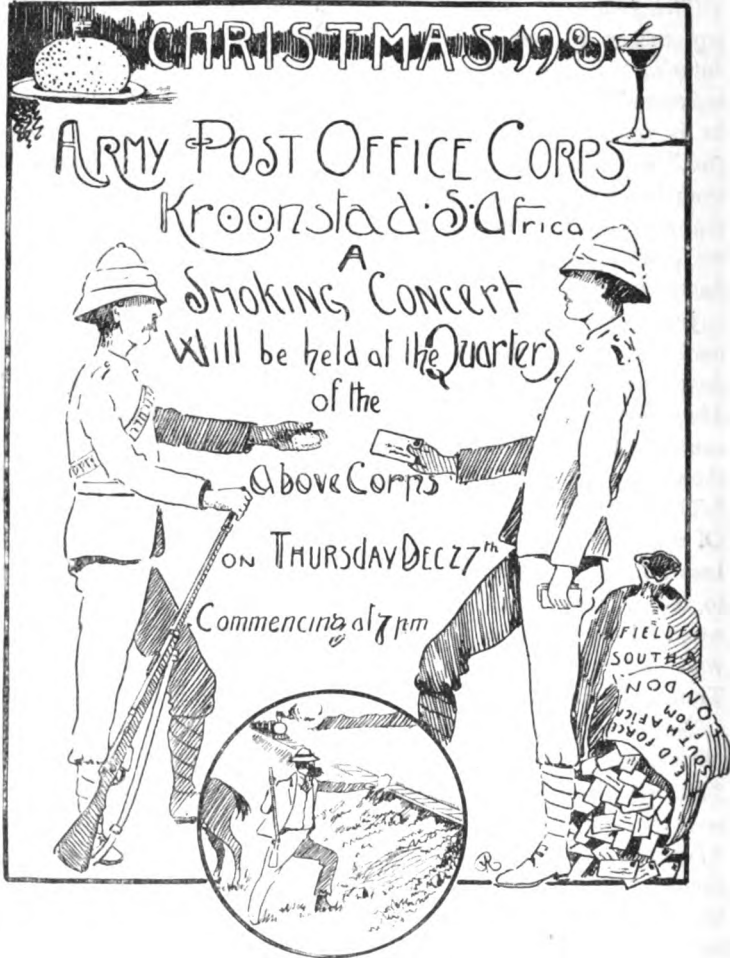 CHRISTMAS 1900
ARMY POST OFFICE CORPS
Kroonstad·S·Africa
A
SMOKING CONCERT
Will be held at the Quarters
of the
above Corps
ON THURSDAY DEC 27th
Commencing at 7 pm
FIELD FO
SOUTH A
LONDON
FROM
SOUTH AFICA
ELD FORCE
R